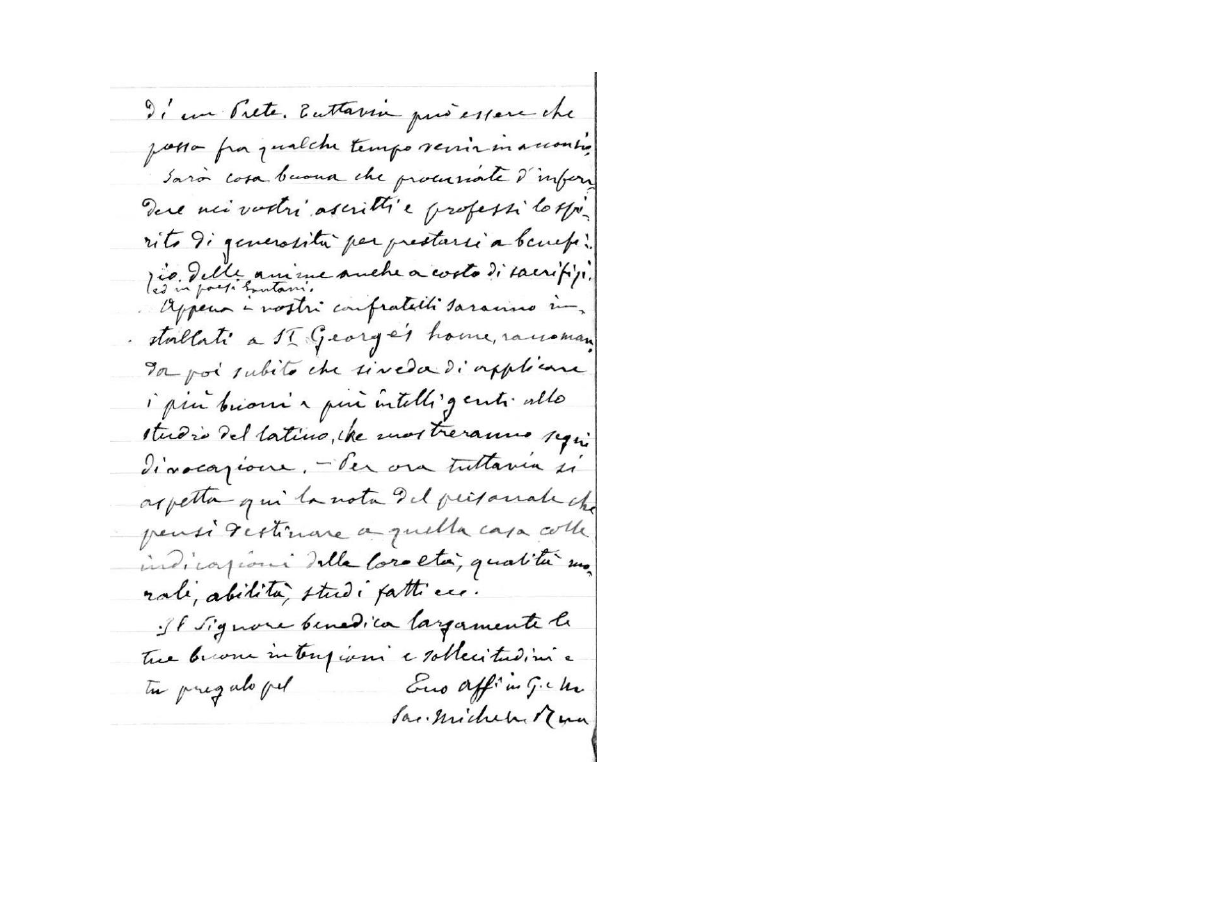 di un Prete. Tuttavia può essere che
possa fra qualche tempo venir in acconcio
Sarà cosa buona che procuriate d'infon-
dere nei vostri ascritti e professi lo spi-
rito di generosità per prestarsi a benefi-
zio delle anime anche a costo di sacrifizi.
ed in paesi lontani.
Appena i vostri confratelli saranno in-
stallati a St George's home, raccoman-
da poi subito che si veda di applicare
i più buoni e più intelligenti allo
studio del latino, che mostreranno segni
di vocazione. – Per ora tuttavia si
aspetta qui la nota del personale che
pensi destinare a quella casa colle
indicazioni della loro età, qualità mo-
rali, abilità, studi fatti ecc.
Il Signore benedica largamente le
tue buone intenzioni e sollecitudini e
tu pregalo pel
Tuo Aff in G. e M
Sac. Michele Rua